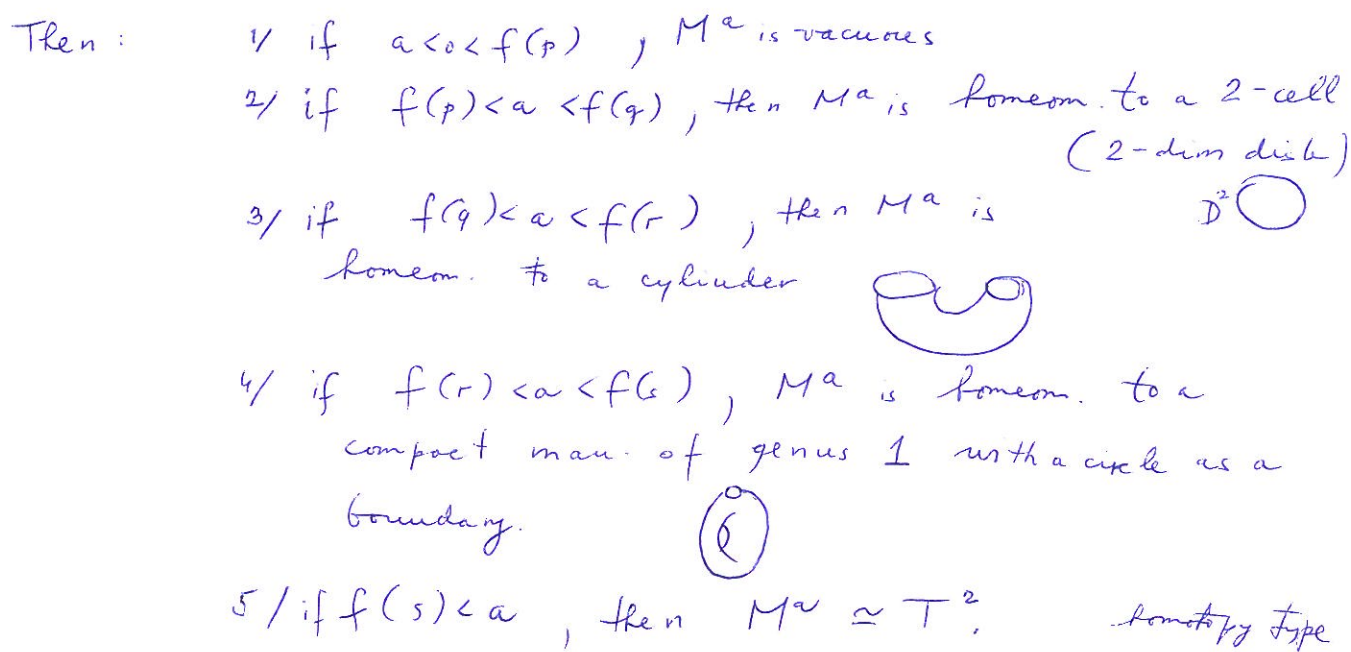 Then : 1/ if a<0<f(p) , Mᵃ is vacuous
2/ if f(p)<a <f(q), then Mᵃ is homeom. to a 2-cell
(2-dim disk)
3/ if f(q)<a<f(r) , then Mᵃ is D²
homeom. to a cylinder
4/ if f(r)<a<f(s) , Mᵃ is homeom. to a
compact man. of genus 1 with a circle as a
boundary.
5/ if f(s)<a , then Mᵃ ≃ T². homotopy type